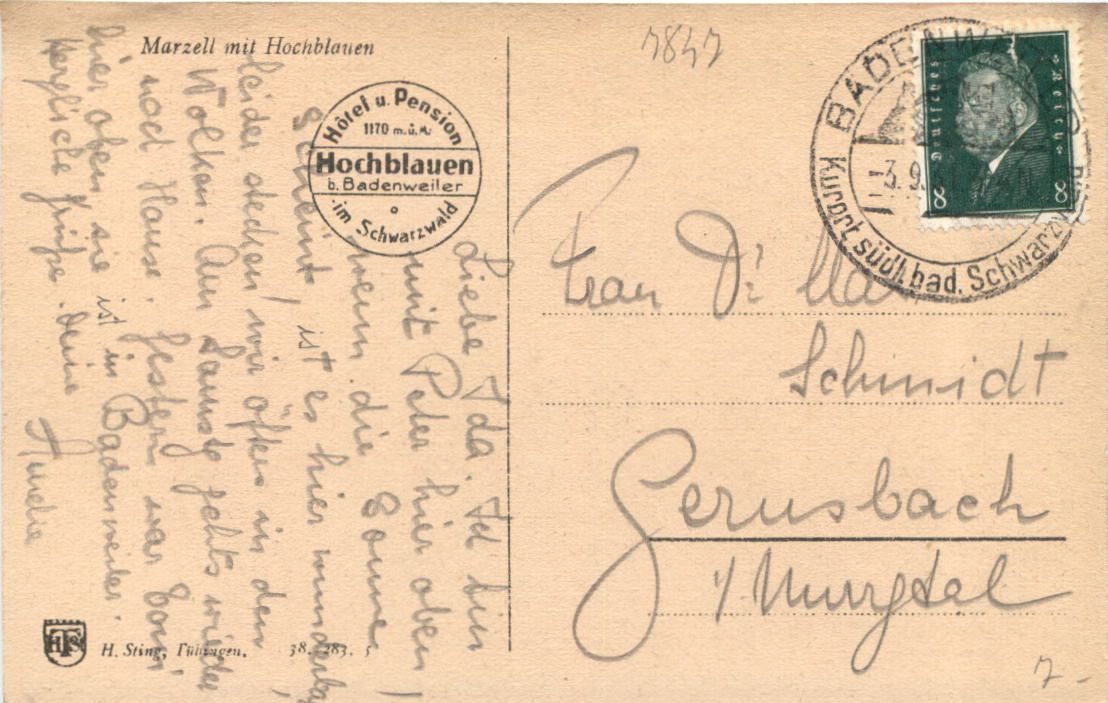 Marzell mit Hochblauen
Hôtel u. Pension
1170 m.ü.M.
Hochblauen
b. Badenweiler
im Schwarzwald
Liebe Ida. Ich bin
mit Peter hier oben,
wenn die Sonne
scheint, ist es hier wunderbar,
leider stecken wir öfters in den
Wolken. Am Samstag gehts wieder
nach Hause. Gestern war
hier oben sie ist in Badenweiler.
Herzliche Grüße. Deine
7847
BADENW
3.9.
Kurort südl. bad. Schwarzw
Deutsches Reich
8 8
Frau Dr.
Schmidt
Gernsbach
i/Murgtal
HTS
H. Sting, Tübingen. 38. 283. 5
7-